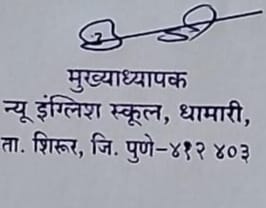 मुख्याध्यापक
न्यू इंग्लिश स्कूल, धामारी,
ता. शिरूर, जि. पुणे-४१२ ४०३